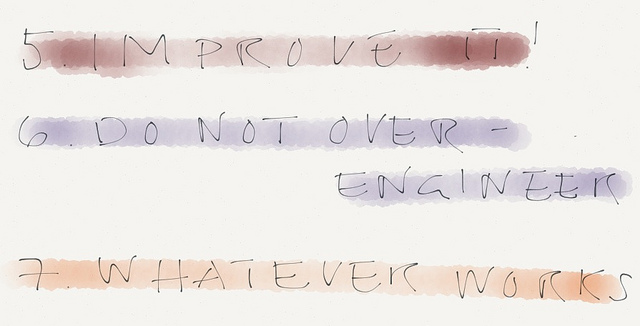 5. IMPROVE IT!
6. DO NOT OVER-
ENGINEER
7. WHATEVER WORKS